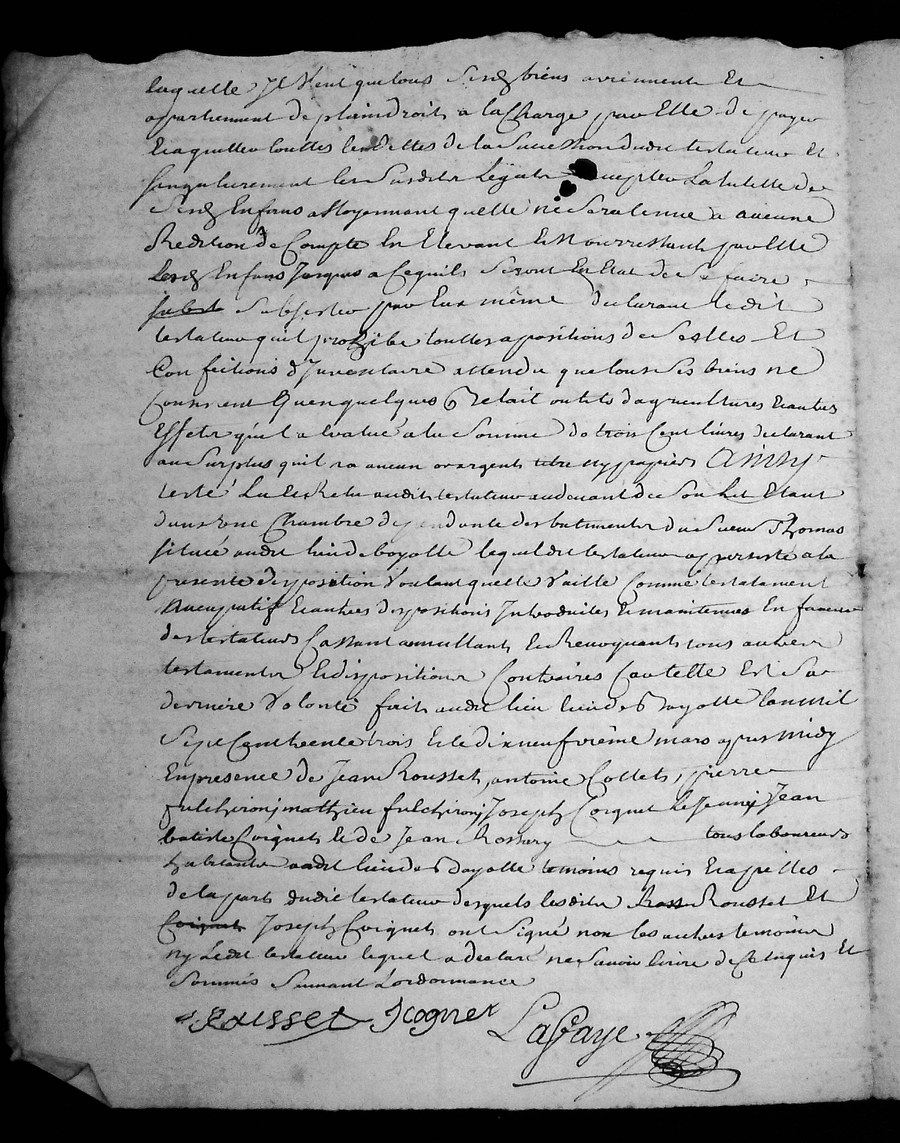 laquelle Il veut que tous sesd biens aviennent et
apartiennent de plain droit a la Charge par elle de payer
et aquitter touttes les dettes de la succession dudit testateur et
singulierement les susdits legats accepter la tutelle de
sesd Enfans a moyennant quelle ne sera tenue a aucune
Redition de Compte En Elevant et nourrissant par elle
lesd Enfans Jusques a ce quils seront En Etat de se faire
subsister par Eux même declarant ledit
testateur quil prohibe touttes apositions de scelles et
Confections d'Inventaire attendu que tous ses biens ne
Consistent quen quelques outils dagricultures et autres
Effets quil a evalue a la somme de trois Cent livres declarant
au surplus quil na aucun or argent titre ny papiers Ainsy
testé Lu et Relu audit testateur au devant de son Lit Etant
dans une Chambre dependante des batiments du sieur Thomas
situeé audit lieu de bayolle lequel dit testateur a persisté a la
presente disposition voulant quelle vaille Comme testatament
nuncupatif et autres dispositions Introduites et maintenues En faveur
des testateurs Cassant annullant et Revoquant tous autres
testaments et dispositions Contraires Car telle est sa
derniere volonté fait audit lieu lieu de Bayolle lan mil
sept Cent trente trois et le dix neuf vième mars apres midy
En presence de Jean Rousset, antoine Collet, pierre
fulchiron, mathieu fulchiron, Joseph Coignet le Jeune, Jean
batiste Coignet et de Jean Rossary tous laboureurs
habitants audit lieu de Bayolle temoins requis et apellés
de la part dudit testateur desquels lesdits Rousset et
Joseph Coignet ont signé non les autres temoins
ny ledit testateur lequel a declaré ne savoir Ecrire de ce Enquis et
sommés suivant l'ordonnance
Rousset Jcognet Lafaye